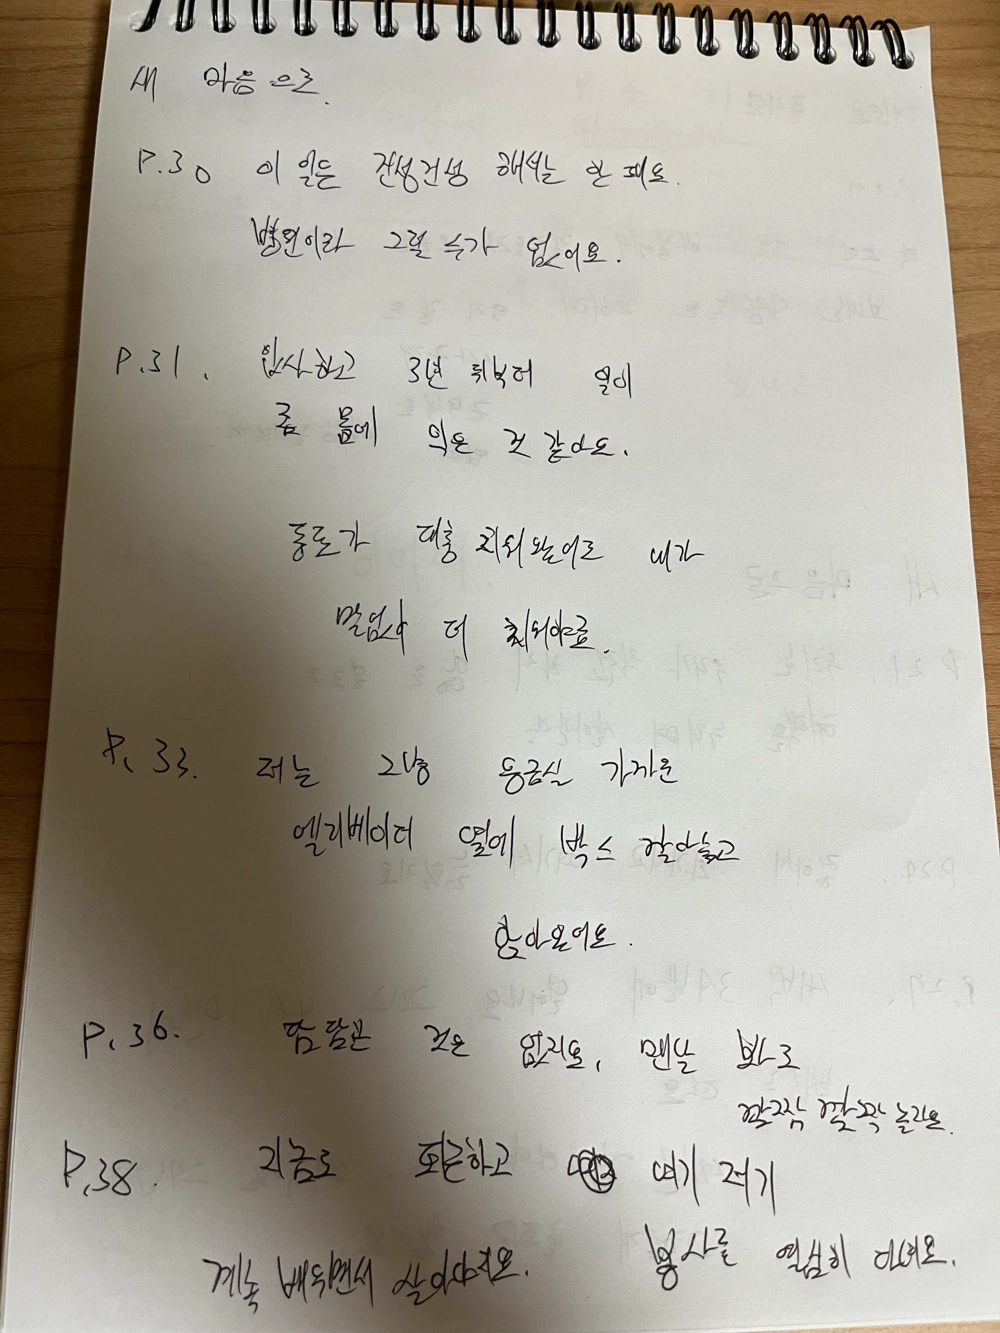 새 마음으로.
P.30 이 일은 건성건성 해서는 안 돼요.
병원이라 그럴 수가 없어요.
P.31. 입사하고 3년 뒤부터 일이
좀 몸에 익은 것 같아요.
동료가 대충 치워놨으면 내가
말없이 더 치워야죠.
P.33. 저는 그냥 응급실 가까운
엘리베이터 옆에 박스 깔아놓고
앉아있어요.
P.36. 담담한 것은 없지요, 맨날 봐도
깜짝 깜짝 놀라요.
P.38. 지금도 퇴근하고 여기 저기
봉사를 열심히 다녀요.
계속 배우면서 살아야지요.